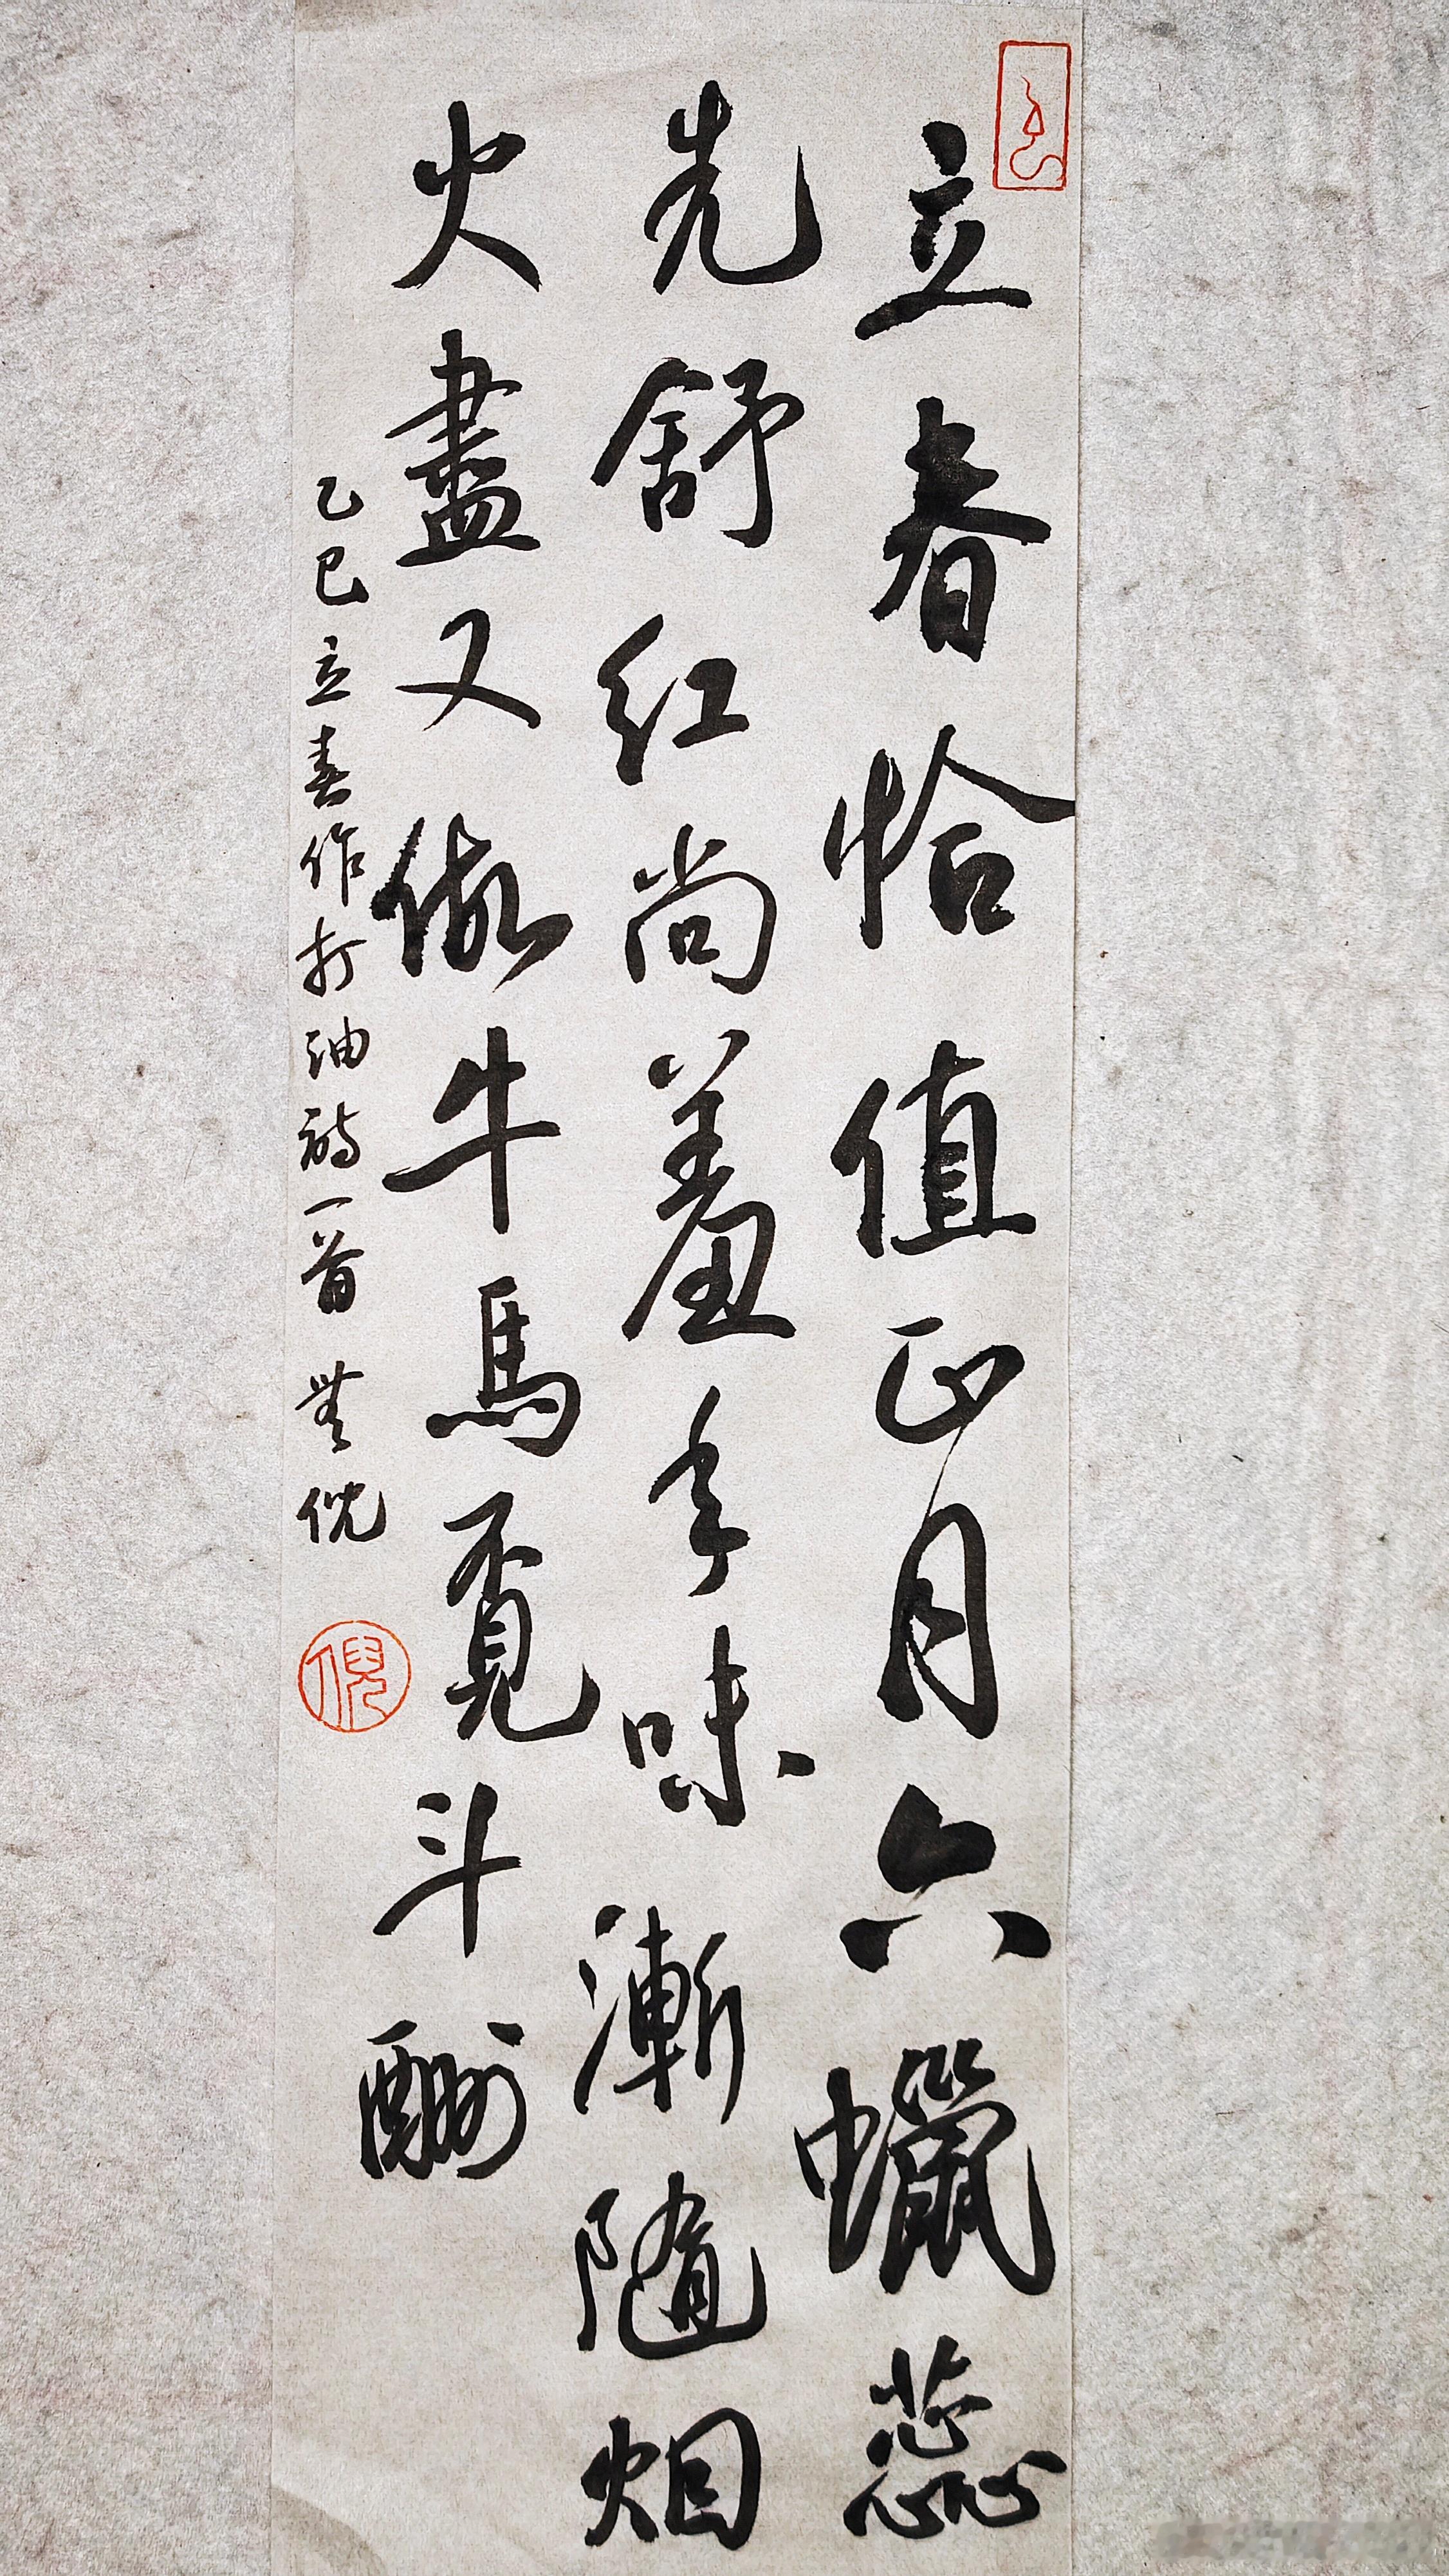 立春恰值正月六蠟蕊
先舒红尚羞年味漸隨烟
火盡又做牛馬覓斗酬
乙巳立春作打油詩一首 無倪
倪